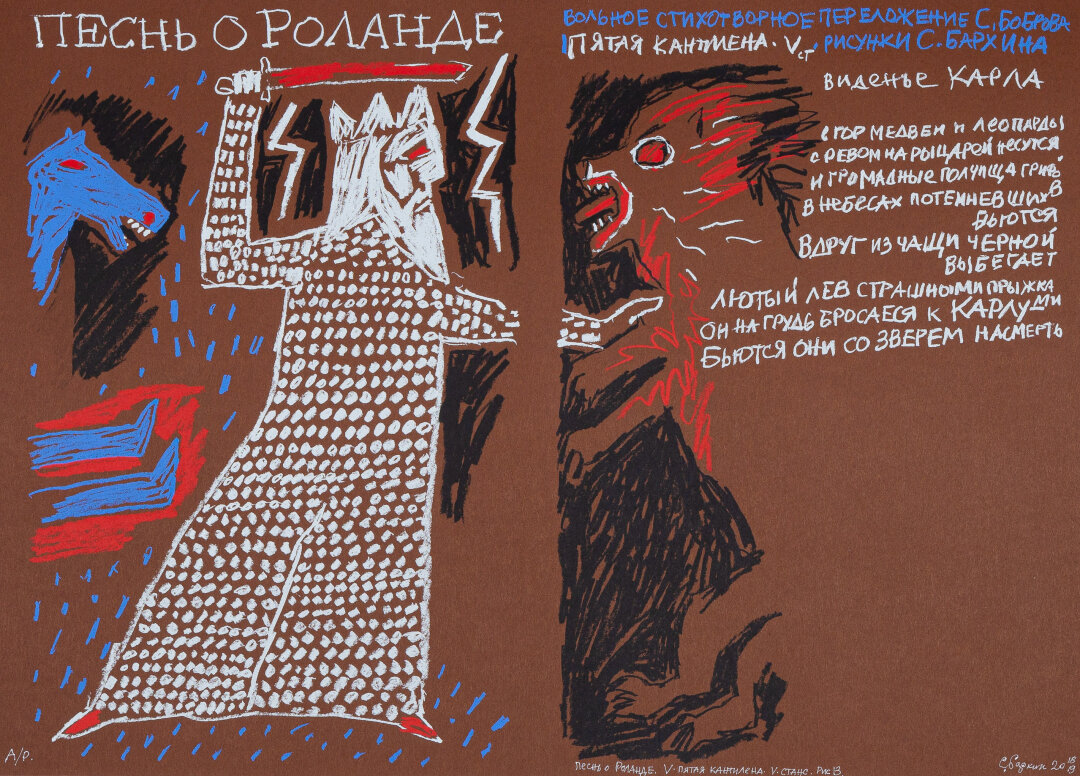 ПЕСНЬ О РОЛАНДЕ
ВОЛЬНОЕ СТИХОТВОРНОЕ ПЕРЕЛОЖЕНИЕ С. БОБРОВА
ПЯТАЯ КАНТИЕНА. V ст. РИСУНКИ С. БАРХИНА
ВИДЕНЬЕ КАРЛА
С ГОР МЕДВЕИ И ЛЕОПАРДЫ
С РЕВОМ НА РЫЦАРЕЙ НЕСУТСЯ
И ГРОМАДНЫЕ ПОЛЧИЩА ГРИФОВ
В НЕБЕСАХ ПОТЕМНЕВШИХ
ВЬЮТСЯ
ВДРУГ ИЗ ЧАЩИ ЧЕРНОЙ
ВЫБЕГАЕТ
ЛЮТЫЙ ЛЕВ СТРАШНЫМИ ПРЫЖКАМИ
ОН НА ГРУДЬ БРОСАЕСЯ К КАРЛУ
БЬЮТСЯ ОНИ СО ЗВЕРЕМ НАСМЕРТЬ
A/P.
ПЕСНЬ О РОЛАНДЕ. V-ПЯТАЯ КАНТИЛЕНА. V. СТАНС. РИС 13.
С. Бархин 20 18/19